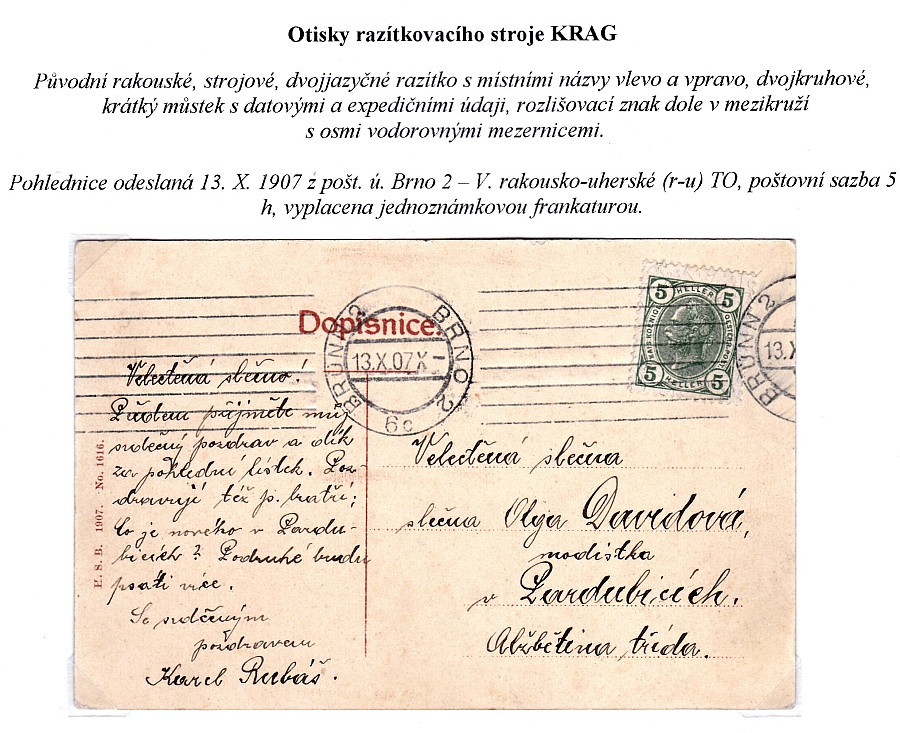 Otisky razítkovacího stroje KRAG
Původní rakouské, strojové, dvojjazyčné razítko s místními názvy vlevo a vpravo, dvojkruhové,
krátký můstek s datovými a expedičními údaji, rozlišovací znak dole v mezikruží
s osmi vodorovnými mezernicemi.
Pohlednice odeslaná 13. X. 1907 z pošt. ú. Brno 2 – V. rakousko-uherské (r-u) TO, poštovní sazba 5
h, vyplacena jednoznámkovou frankaturou.
Dopisnice.
BRÜNN 2
BRNO 2
13.X.07 X-
6c
5 HELLER 5
5 HELLER 5
BRÜNN 2
13.X
Velectěná slečno!
přijměte můj
srdečný pozdrav a dík
za pohlední lístek. Poz-
dravují též p. bratří;
Co je nového v Pardu-
bicích? Podruhé budu
psáti více.
Se srdečným
pozdravem
Karel Rubáš.
H. S. B. 1907. No. 1616.
Velectěná slečna
slečna Olga Davidová,
modistka
v Pardubicích.
Alžbětina třída.